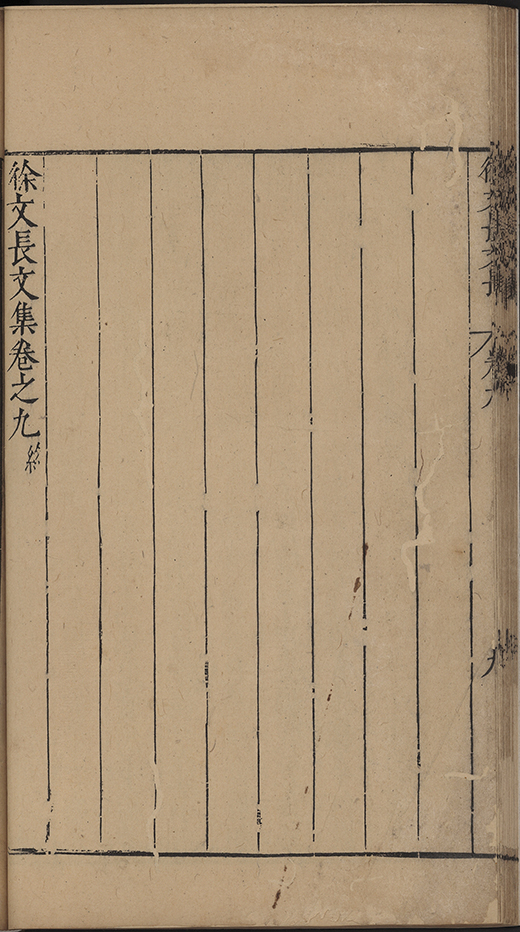 徐文長文集
卷九
九
徐文長文集卷之九終